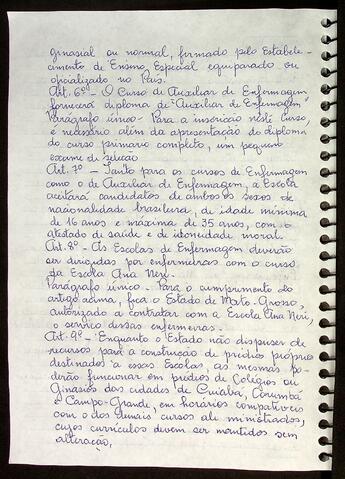 ginasial ou normal, firmado pelo Estabele-
cimento de Ensino Especial equiparado ou
oficializado no País.
Art. 6º - O Curso de Auxiliar de Enfermagem
fornecerá diploma de "Auxiliar de Enfermagem"
Parágrafo único - Para a inscrição neste Curso,
é necessário além da apresentação do diploma
do curso primário completo, um pequeno
exame de seleção
Art. 7º - Tanto para os cursos de Enfermagem
como o de Auxiliar de Enfermagem, a Escola
aceitará candidatos de ambos os sexos de
nacionalidade brasileira, de idade mínima
de 16 anos e máxima de 35 anos, com o
atestado de saúde e de idoneidade moral.
Art. 8º - As Escolas de Enfermagem deverão
ser dirigidas por enfermeiras com o curso
da Escola Ana Neri.
Parágrafo único - Para o cumprimento do
artigo acima, fica o Estado de Mato-Grosso,
autorizado a contratar com a Escola Ana Neri,
o serviço dessas enfermeiras.
Art. 9º - Enquanto o Estado não dispuser de
recursos para a construção de prédios próprios
destinados a essas Escolas, as mesmas po-
derão funcionar em prédios de Colégios ou
Ginásios das cidades de Cuiabá, Corumbá
e Campo-Grande, em horários compatíveis
com o dos demais cursos ali ministrados,
cujos currículos devem ser mantidos sem
alteração.